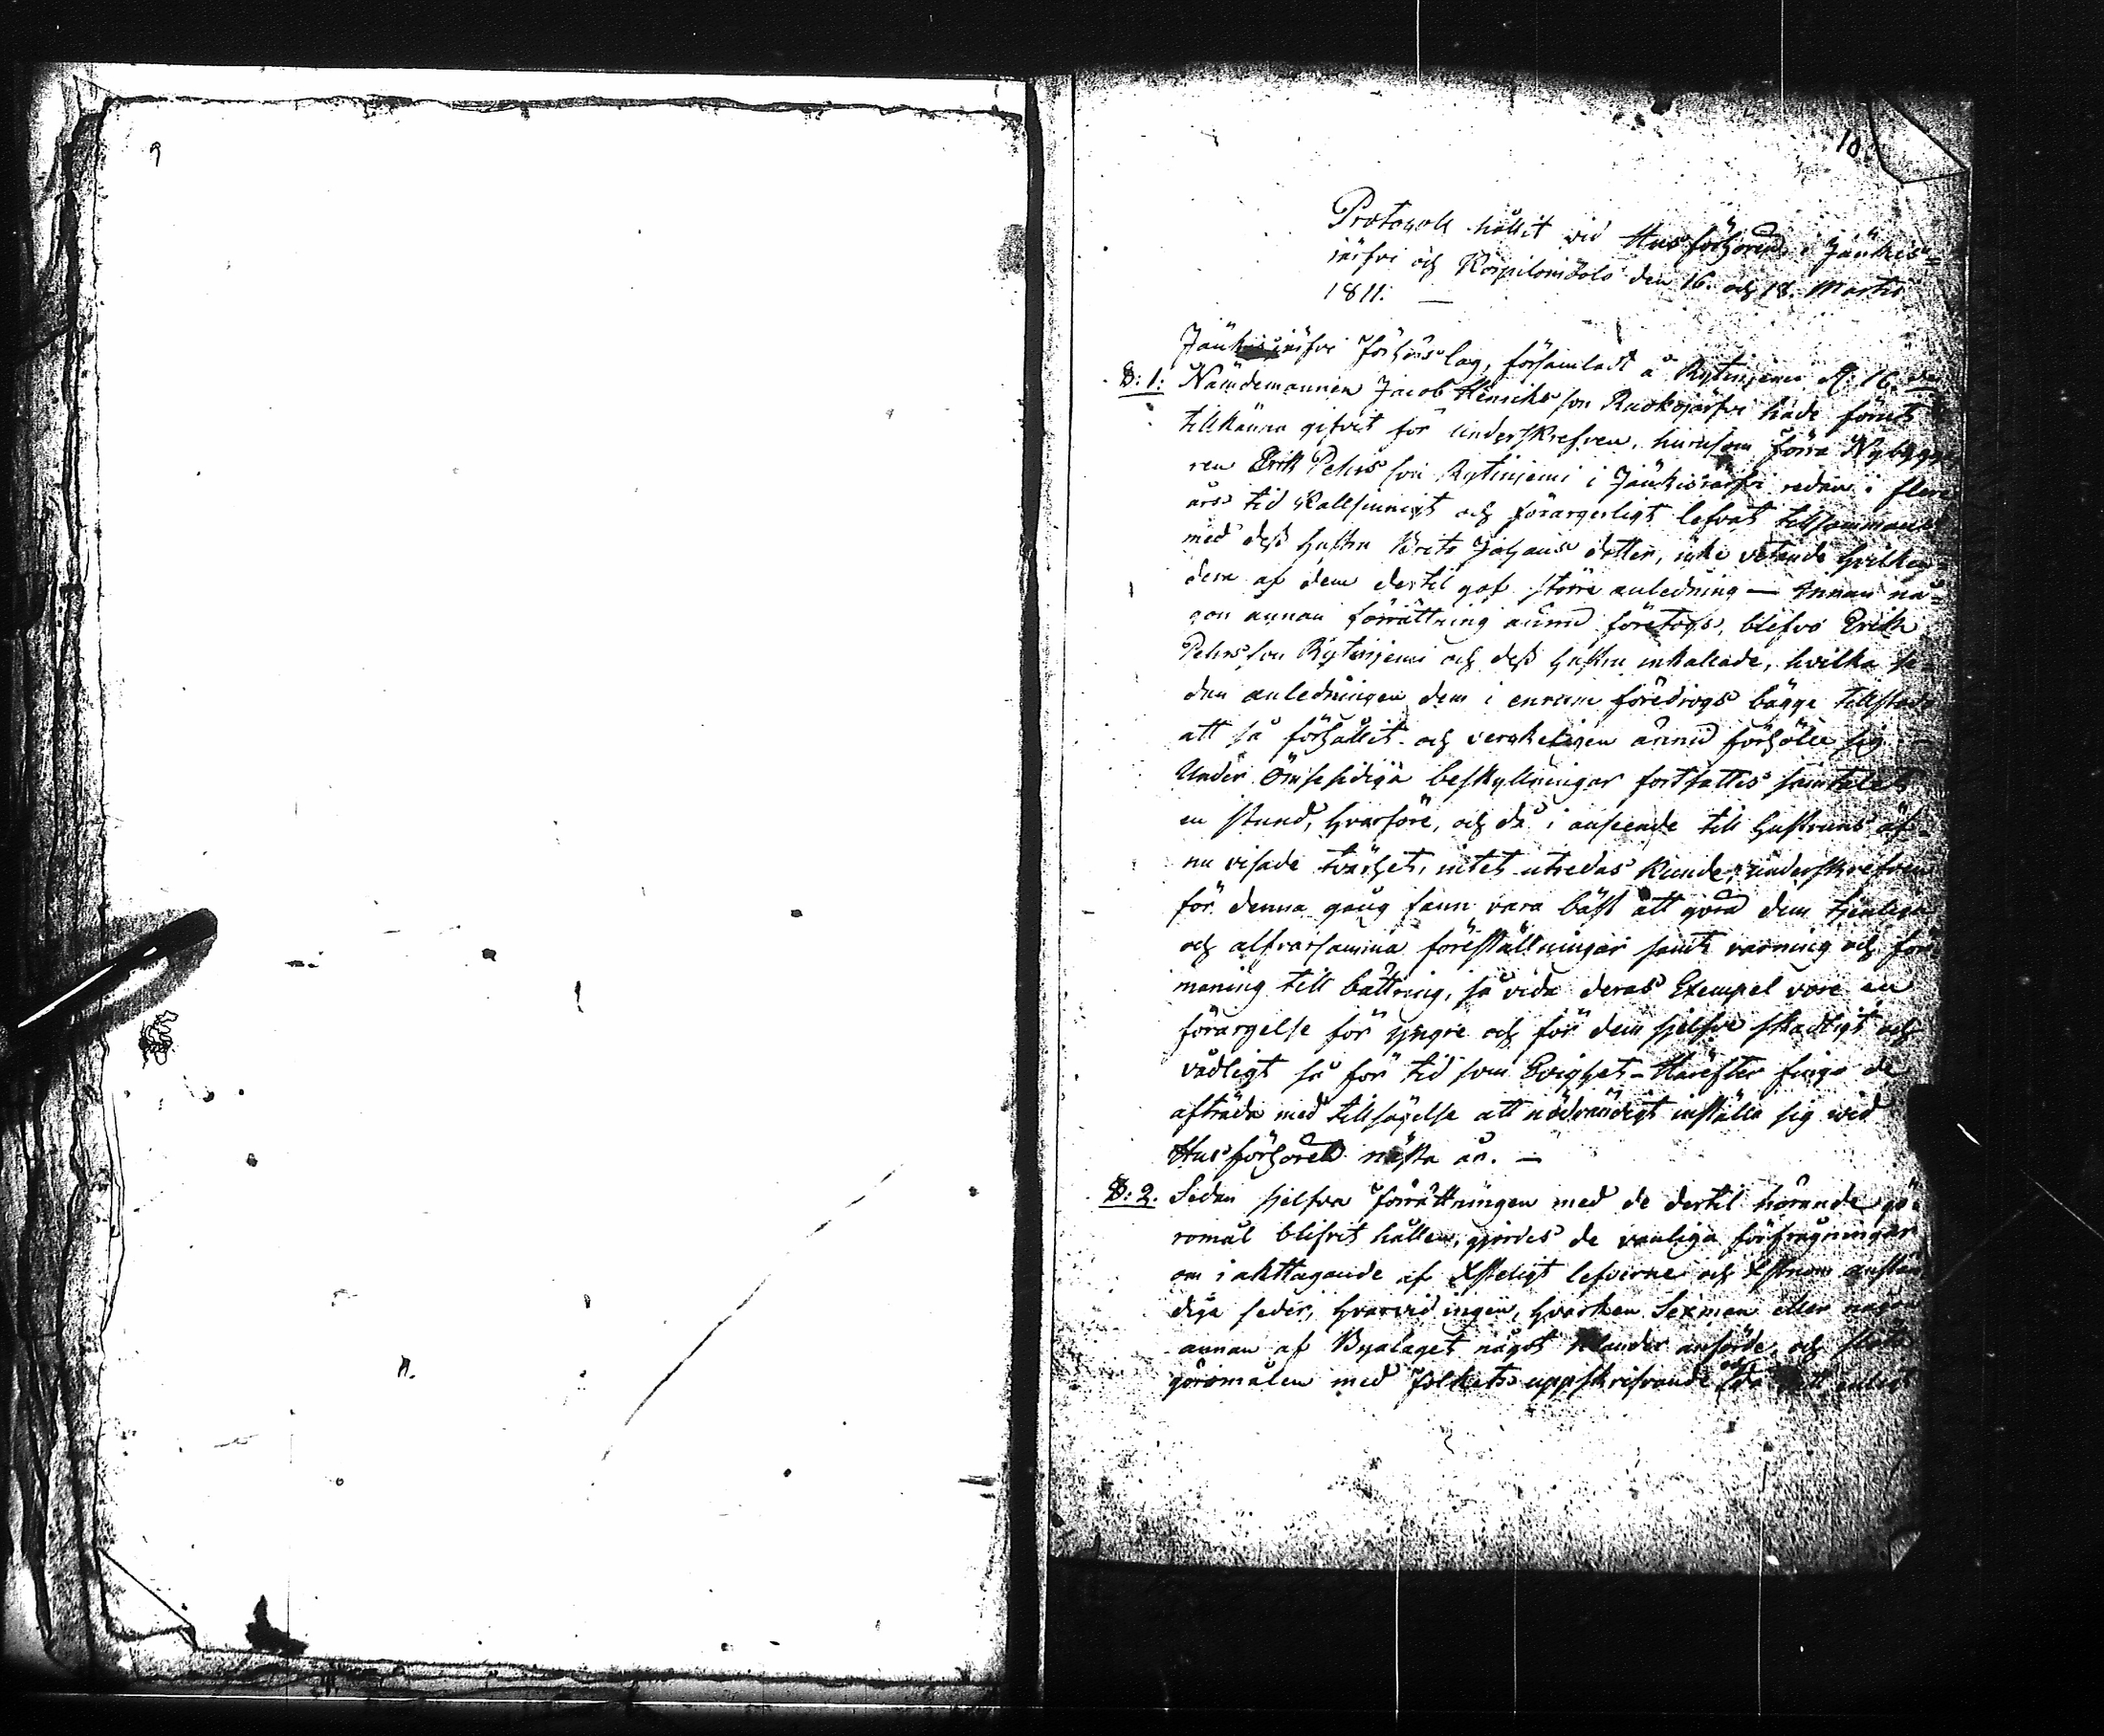 9
10
Protocoll hållit vid Husförhoren i Jänkis=
järfvi och Korpilombolo den 16. och 18. Martii
1811. —
Jänkisjärfvi Förhörslag, församladt å Rytinjemi d. 16. 
§: 1: Nämdemannen Jacob Henricksson Ruokojärfvi hade förut
tillkänna gifvit för underskrefven, hurusom förra Nybygga
ren Erik Pehrsson Rytinjemi i Jänkisjärfvi redan i flere
års tid kallsinnigt och förargerligt lefvat tillsammans
med dess hustru Brita Johansdotter, icke vetande hvilken=
dera af dem dertil gaf större anledning — Innan nå=
gon annan förrättning ännu företogs, blefvo Erik
Pehrsson Rytinjemi och dess hustru inkallade, hvilka se=
dan anledningen dem i enrum föredrogs bägge tillstodo
att så förhållit och verkeligen ännu förhölle sig —
Under Ömsesidiga beskyllningar fortsattes samtalet
en stund, hvarföre, och då i anseende till hustruns äf=
nu visade tvärhet, intet utredas kunde, underskrefven
för denna gång fann vara bäst att göra dem tjenliga
och alfvarsamma föreställningar samt varning och för
maning till bättring, så vida deras Exempel vore en
förargelse för yngre och för dem sjelfve skadligt och
vådligt så för tid som Evighet — Härefter fingo de
afträda med tillsägelse att nödvändigt inställa sig wid
Husförhoren nästa år. —
§: 2. Sedan sjelfva Förrättningen med de dertil hörande gö
romål blifvit hållen, gjordes de vanliga förfrågningar
om iakttagande af Xsteligt lefverne och Xstnom anstän
diga seder, hvarvid ingen, hvarken Sexmen eller någon
annan af Byalaget något klander anförde, och
göromålen med Folkets uppskrifvande och